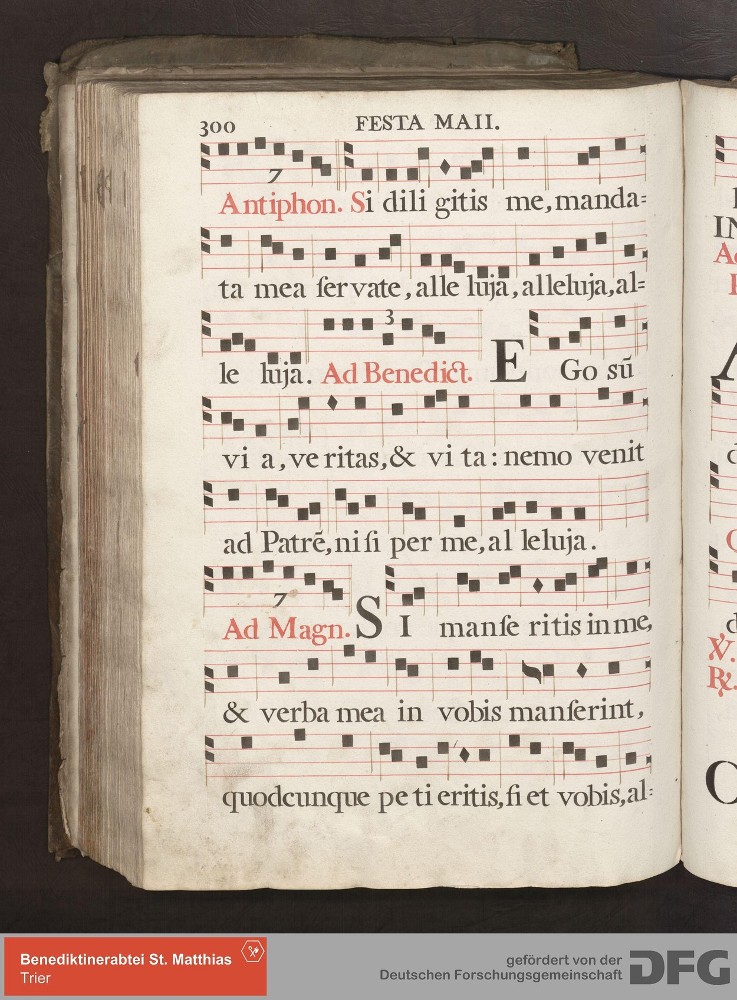 300 FESTA MAII.
7
Antiphon. Si dili gitis me, manda=
ta mea ſervate, alle luja, alleluja, al=
3
le luja. Ad Benedict. EGo sū
vi a, ve ritas, & vi ta: nemo venit
ad Patrē, ni ſi per me, al leluja.
7
Ad Magn. SI manſe ritis in me,
& verba mea in vobis manſerint,
quodcunque pe ti eritis, ſi et vobis, al=
IN
Ad
℣.
℟.
Benediktinerabtei St. Matthias
Trier
gefördert von der
Deutschen Forschungsgemeinschaft
DFG